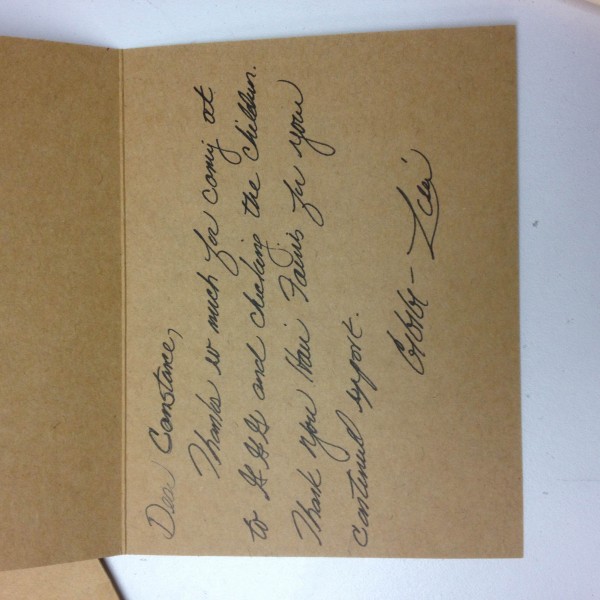 Dear Constance,
Thanks so much for coming out
to and checking the children.
Thank you Hair Fairies for your
continued support.